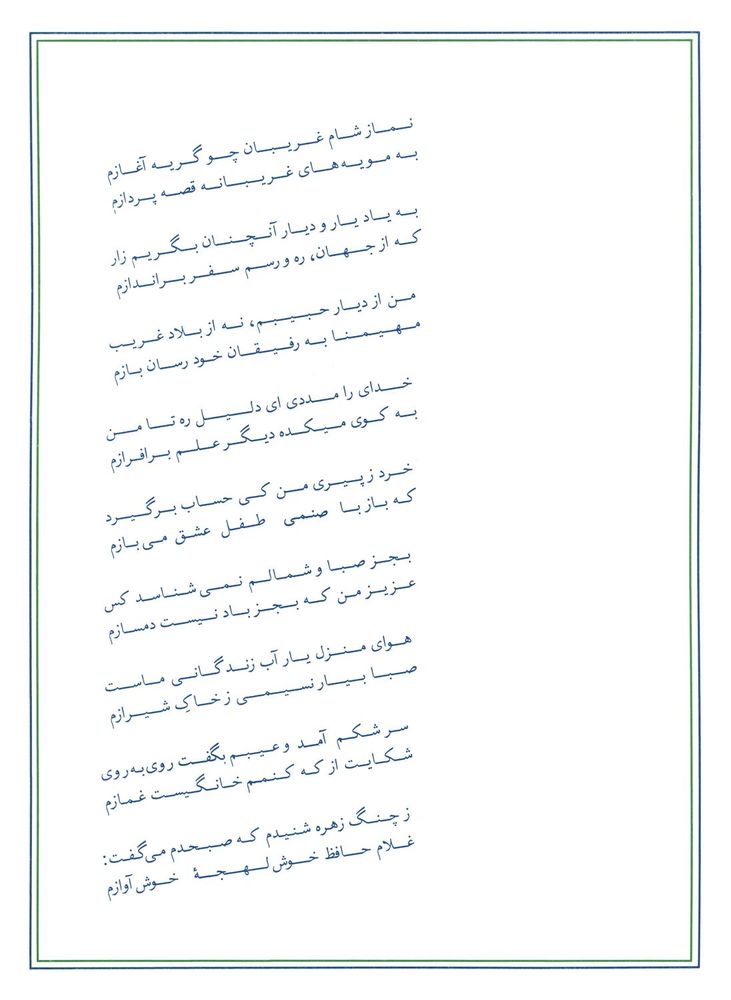 نماز شام غریبان چو گریه آغازم
به مویه‌های غریبانه قصه پردازم
به یاد یار و دیار آنچنان بگریم زار
که از جهان، ره و رسم سفر براندازم
من از دیار حبیبم، نه از بلاد غریب
مهیمنا به رفیقان خود رسان بازم
خدای را مددی ای دلیل ره تا من
به کوی میکده دیگر علم برافرازم
خرد ز پیری من کی حساب برگیرد
که باز با صنمی طفل عشق می‌بازم
بجز صبا و شمالم نمی‌شناسد کس
عزیز من که بجز باد نیست دمسازم
هوای منزل یار آب زندگانی ماست
صبا بیار نسیمی ز خاکِ شیرازم
سرشکم آمد و عیبم بگفت روی‌به‌روی
شکایت از که کنم خانگیست غمازم
ز چنگ زهره شنیدم که صبحدم می‌گفت:
غلام حافظ خوش لهجهٔ خوش آوازم